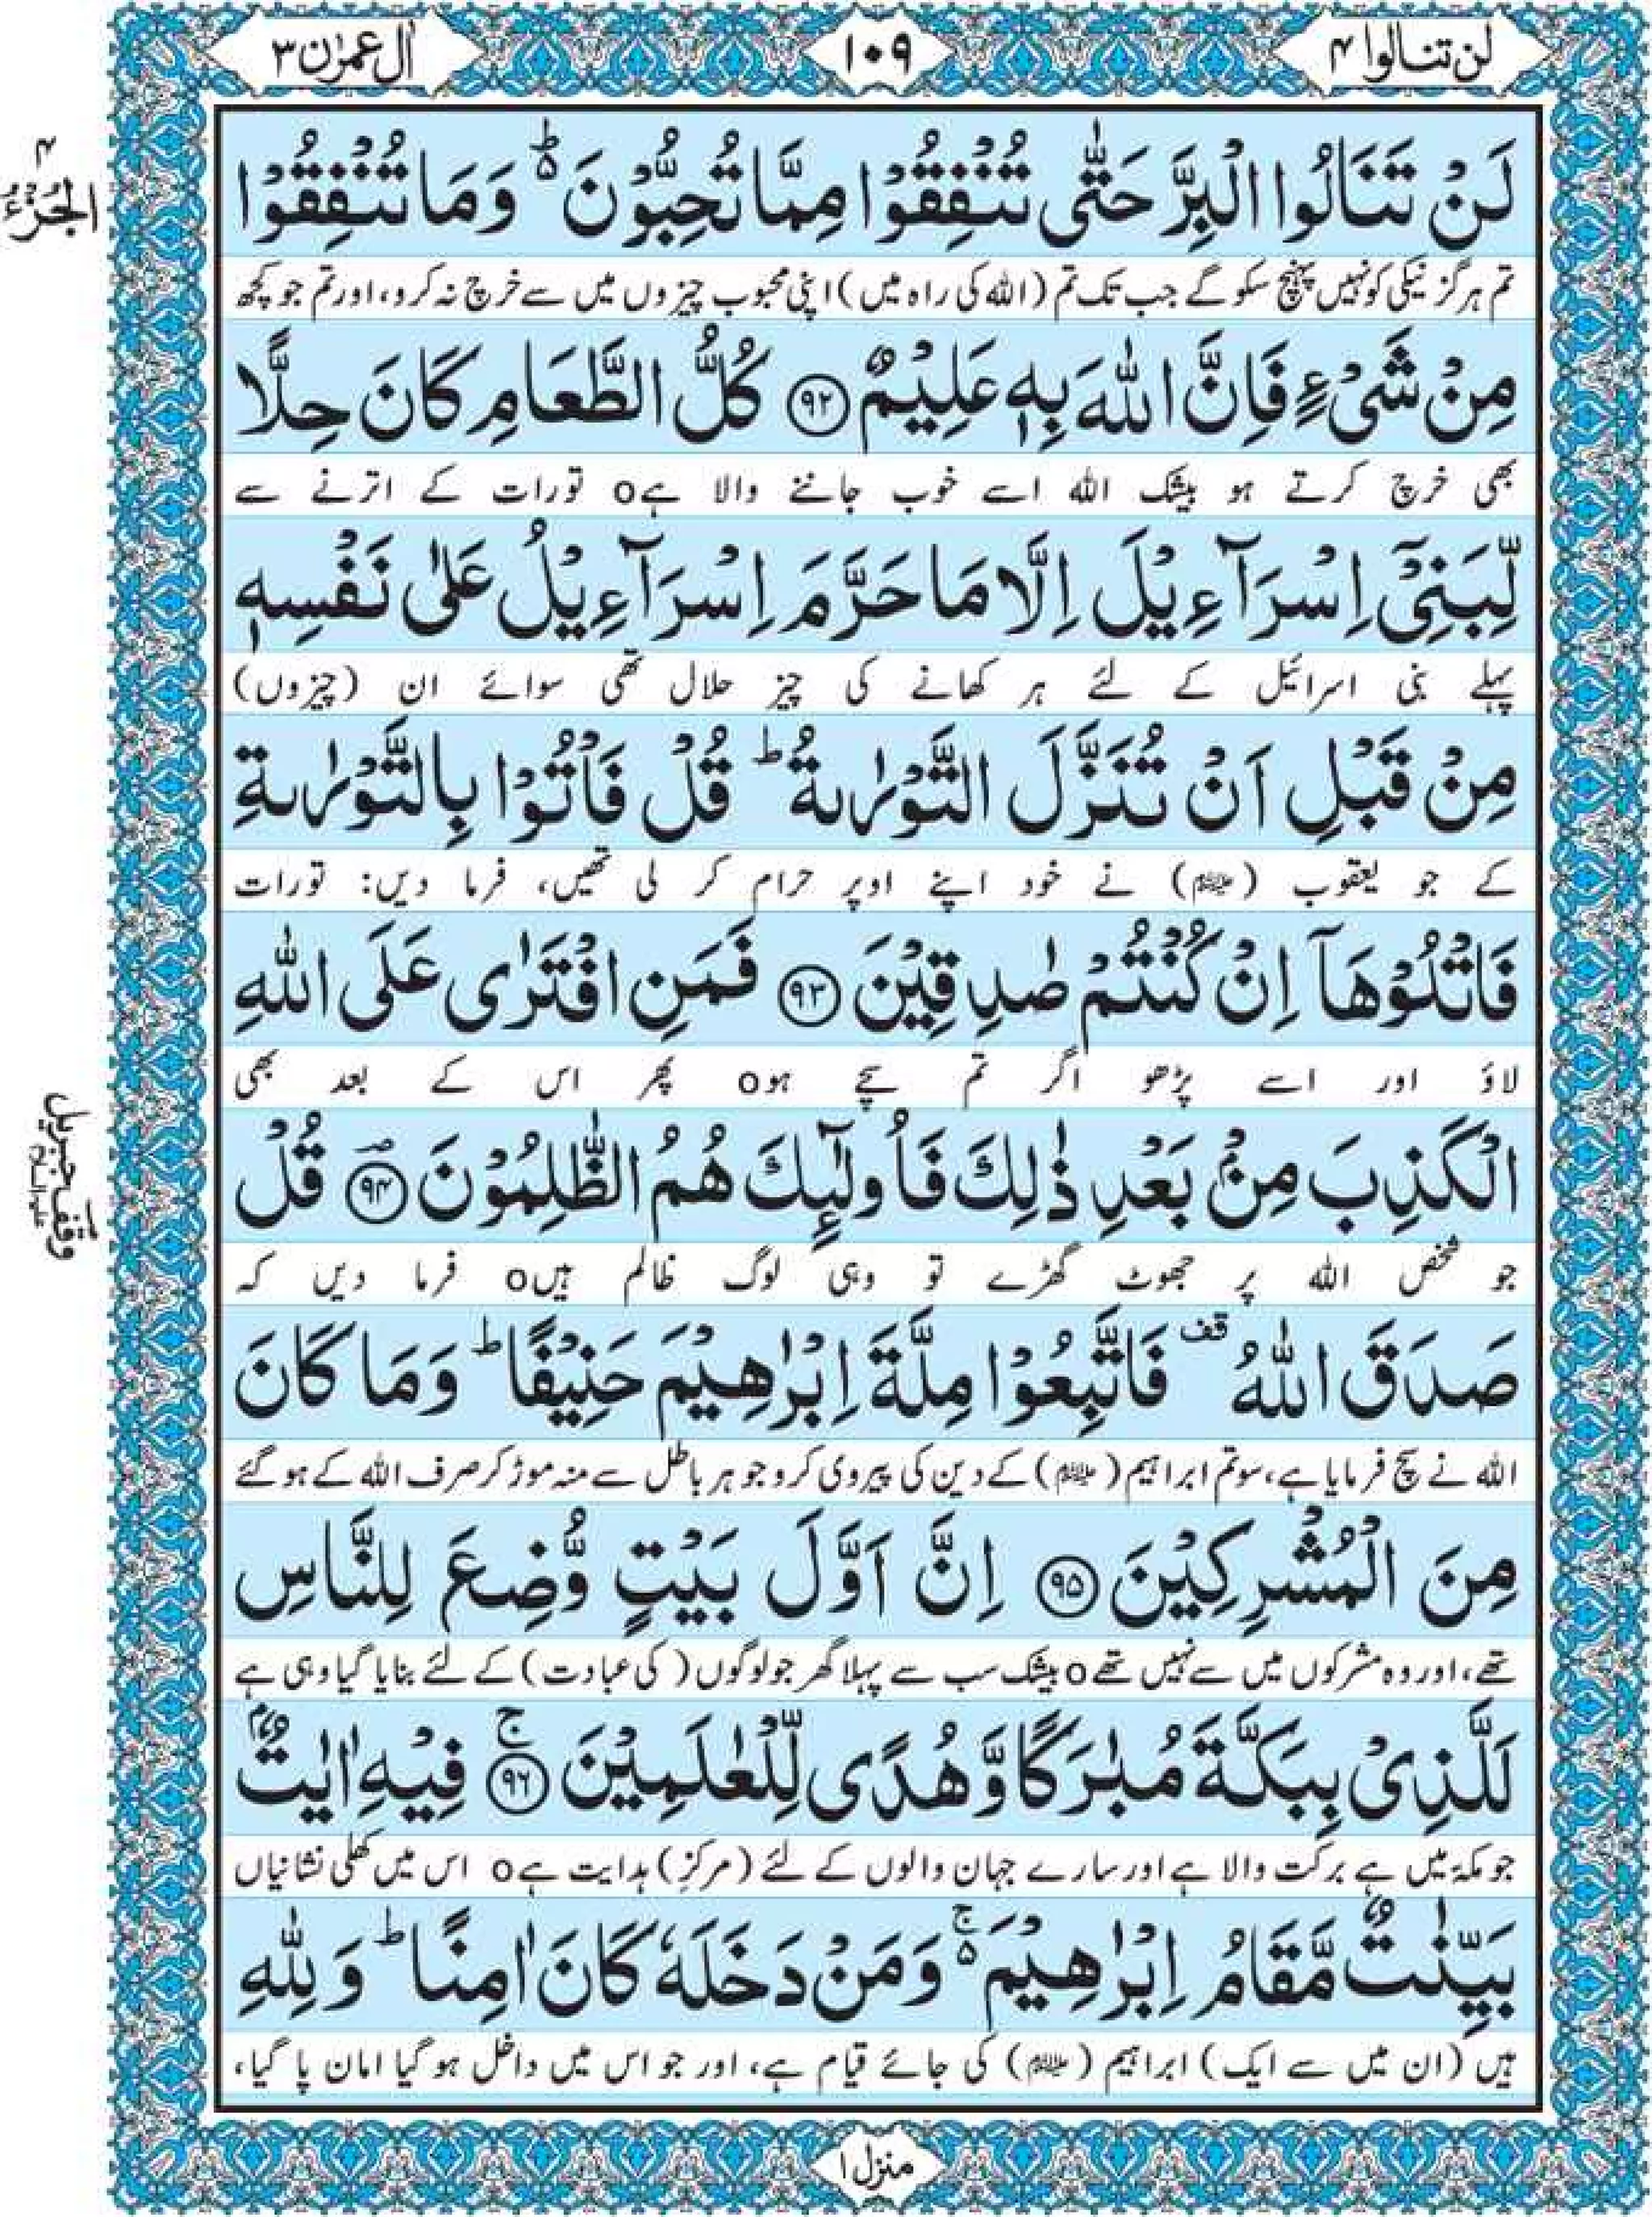 لن تنالوا ۴
۱۰۹
اٰل عمرٰن ۳
الجزء ۴
لَنْ تَنَالُوا الْبِرَّ حَتّٰى تُنْفِقُوْا مِمَّا تُحِبُّوْنَ ؕ۬ وَمَا تُنْفِقُوْا
تم ہرگز نیکی کو نہیں پہنچ سکو گے جب تک تم (اللہ کی راہ میں) اپنی محبوب چیزوں میں سے خرچ نہ کرو، اور تم جو کچھ
مِنْ شَیْءٍ فَاِنَّ اللّٰهَ بِهٖ عَلِیْمٌ ﴿۹۲﴾ كُلُّ الطَّعَامِ كَانَ حِلًّا
بھی خرچ کرتے ہو بیشک اللہ اسے خوب جاننے والا ہے o تورات کے اترنے سے
لِّبَنِیْۤ اِسْرَآءِیْلَ اِلَّا مَا حَرَّمَ اِسْرَآءِیْلُ عَلٰى نَفْسِهٖ
پہلے بنی اسرائیل کے لئے ہر کھانے کی چیز حلال تھی سوائے ان (چیزوں)
مِنْ قَبْلِ اَنْ تُنَزَّلَ التَّوْرٰىةُ ؕ قُلْ فَاْتُوْا بِالتَّوْرٰىةِ
کے جو یعقوب (علیہ السلام) نے خود اپنے اوپر حرام کر لی تھیں، فرما دیں: تورات
فَاتْلُوْهَاۤ اِنْ كُنْتُمْ صٰدِقِیْنَ ﴿۹۳﴾ فَمَنِ افْتَرٰى عَلَى اللّٰهِ
لاؤ اور اسے پڑھو اگر تم سچے ہو o پھر اس کے بعد بھی
الْكَذِبَ مِنْۢ بَعْدِ ذٰلِكَ فَاُولٰٓىِٕكَ هُمُ الظّٰلِمُوْنَ ﴿۹۴﴾ؔ قُلْ
وقف جبریل علیہ السلام
جو شخص اللہ پر جھوٹ گھڑے تو وہی لوگ ظالم ہیں o فرما دیں کہ
صَدَقَ اللّٰهُ قف فَاتَّبِعُوْا مِلَّةَ اِبْرٰهِیْمَ حَنِیْفًا ؕ وَمَا كَانَ
اللہ نے سچ فرمایا ہے، سو تم ابراہیم (علیہ السلام) کے دین کی پیروی کرو جو ہر باطل سے منہ موڑ کر صرف اللہ کے ہو گئے
مِنَ الْمُشْرِكِیْنَ ﴿۹۵﴾ اِنَّ اَوَّلَ بَیْتٍ وُّضِعَ لِلنَّاسِ
تھے، اور وہ مشرکوں میں سے نہیں تھے o بیشک سب سے پہلا گھر جو لوگوں (کی عبادت) کے لئے بنایا گیا وہی ہے
لَلَّذِیْ بِبَكَّةَ مُبٰرَكًا وَّهُدًى لِّلْعٰلَمِیْنَ ﴿۹۶﴾ۚ فِیْهِ اٰیٰتٌۢ
جو مکّہ میں ہے برکت والا ہے اور سارے جہان والوں کے لئے (مرکزِ) ہدایت ہے o اس میں کھلی نشانیاں
بَیِّنٰتٌ مَّقَامُ اِبْرٰهِیْمَ ۚ۬ وَمَنْ دَخَلَهٗ كَانَ اٰمِنًا ؕ وَلِلّٰهِ
ہیں (ان میں سے ایک) ابراہیم (علیہ السلام) کی جائے قیام ہے، اور جو اس میں داخل ہو گیا امان پا گیا،
منزل ۱